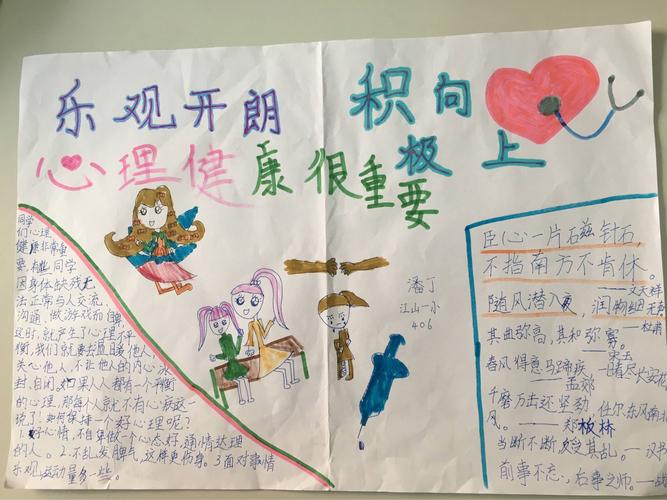 乐观开朗 积极向上
心理健康很重要
同学
们心理
健康非常重
要,有些同学
因身体缺残无
法正常与人交流,
沟通,做游戏而自卑,
这时,就产生了心理不平
衡,我们就要去直接他人,
关心他人,不让他人的内心冰
封,自闭,如果人人都有一个平衡
的心理,那每个人就不有心疾这一
说了!如何保持一个好心理呢?
1.好心情,不自卑做一个心态好,通情达理
的人。2.不乱发脾气,这样更伤身。3面对事情
乐观运动量多一些。
潘丁
江山一小
406
臣心一片石兹针石,
不指南方不肯休。
——文天祥
随风潜入夜,润物细无声
——杜甫
其曲弥高,其和弥寡。
——宋玉
春风得意马蹄疾,一日看尽长安花
——孟郊
千磨万击还坚劲,任尔东风南北
风。——郑板桥
当断不断反受其乱。——汉书
前事不忘,后事之师。——战